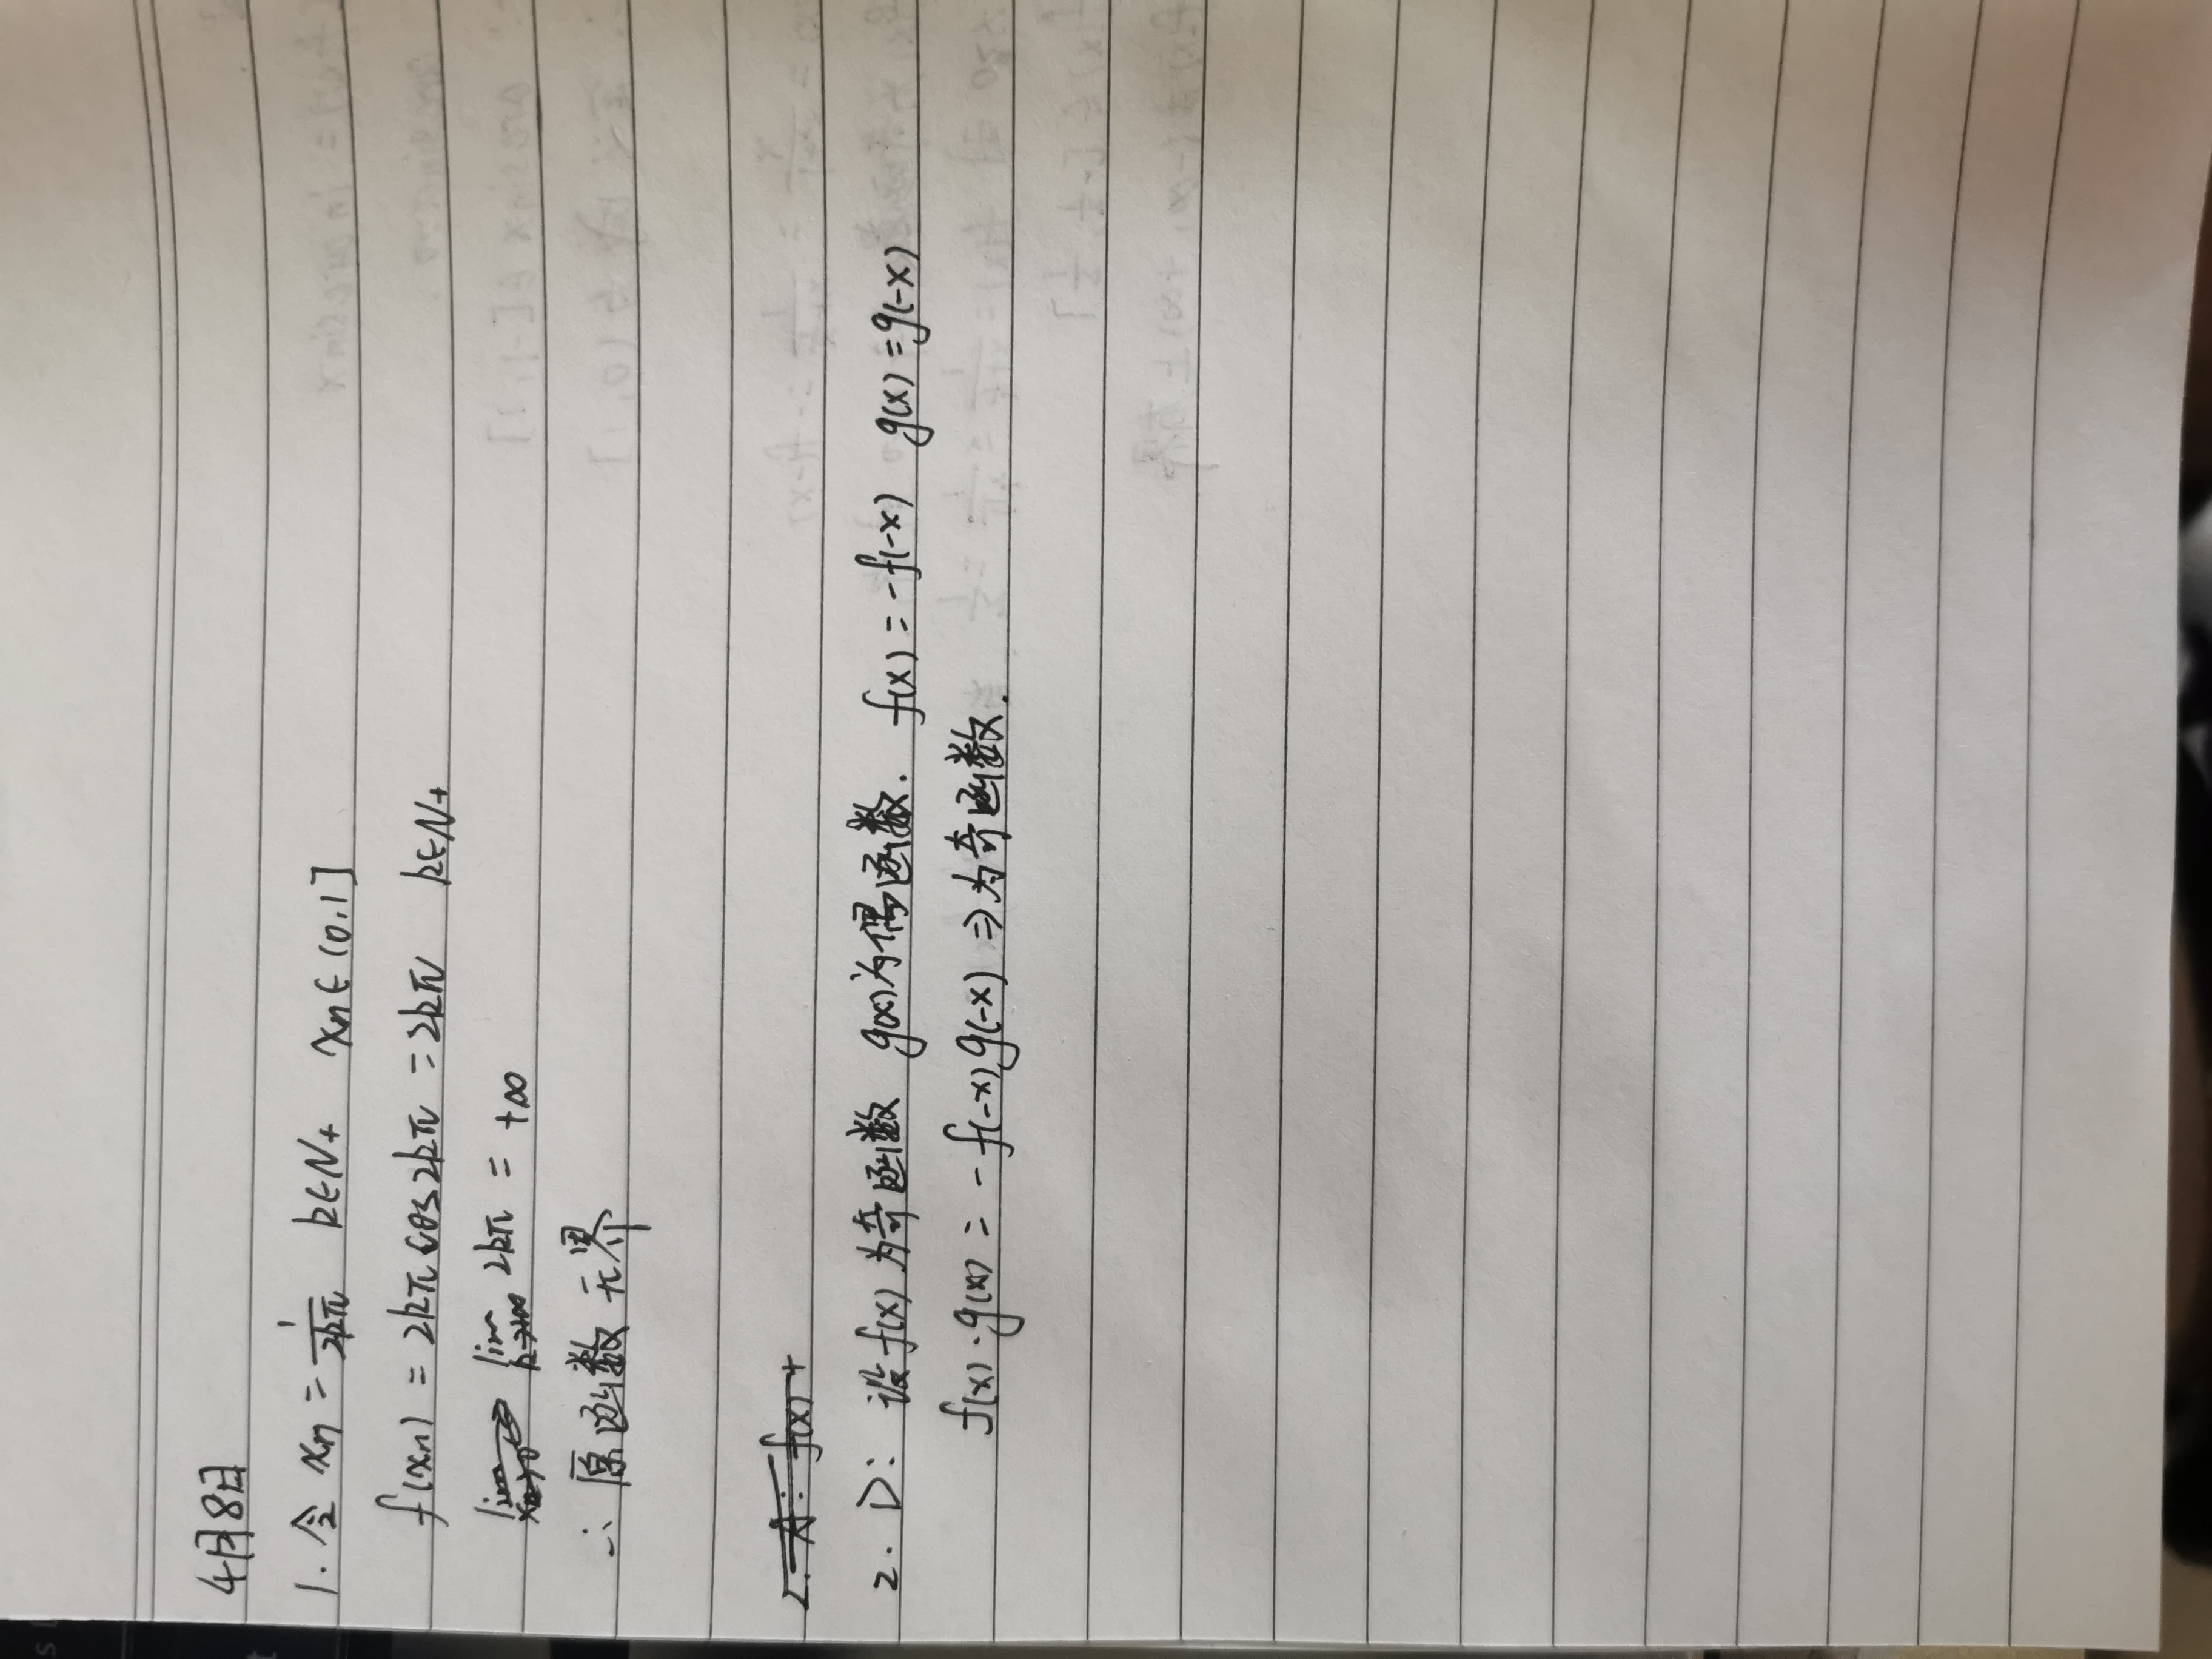 4月8日
1. 令 xn = 1/2kπ k∈N+ xn∈(0,1]
f(xn) = 2kπ cos2kπ = 2kπ k∈N+
lim k→+∞ 2kπ = +∞
∴ 原函数无界
2. A: f(x)+
2. D: 设 f(x) 为奇函数 g(x)为偶函数. f(x) = -f(-x) g(x) = g(-x)
f(x)·g(x) = -f(-x)g(-x) ⇒ 为奇函数.